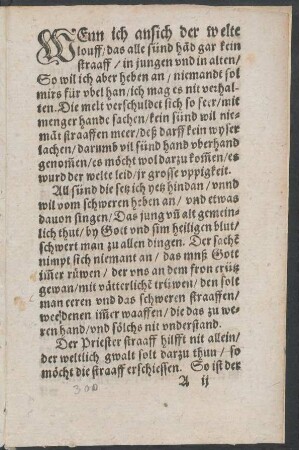 WEnn ich ansich der welte
louff/das alle sünd hād gar kein
straaff/in jungen vnd in alten/
So wil ich aber heben an/niemandt sol
mirs für vbel han/ich mag es nit verhal-
ten. Die welt verschuldet sich so seer/mit
menger hande sachen/kein sünd wil nie-
māt straaffen meer/deß darff kein wyser
lachen/darumb vil sünd hand vberhand
genom̄en/es möcht wol darzu kom̄en/es
wurd der welte leid/jr grosse vppigkeit.
All sünd die setz ich yetz hindan/vnnd
wil vom schweren heben an/vnd etwas
dauon singen/Das jung vn̄ alt gemein-
lich thut/by Gott vnd sim heiligen blut/
schwert man zu allen dingen. Der sachē
nimpt sich niemant an/das muß Gott
im̄er rüwen/der vns an dem fron crütz
gewan/mit vätterlichē trüwen/den solt
man eeren vnd das schweren straaffen/
wee denen im̄er waaffen/die das zu we-
ren hand/vnd sölchs nit vnderstand.
Der Priester straaff hilfft nit allein/
der weltlich gwalt solt darzu thun/so
möcht die straaff erschiessen. So ist der
A ij
300